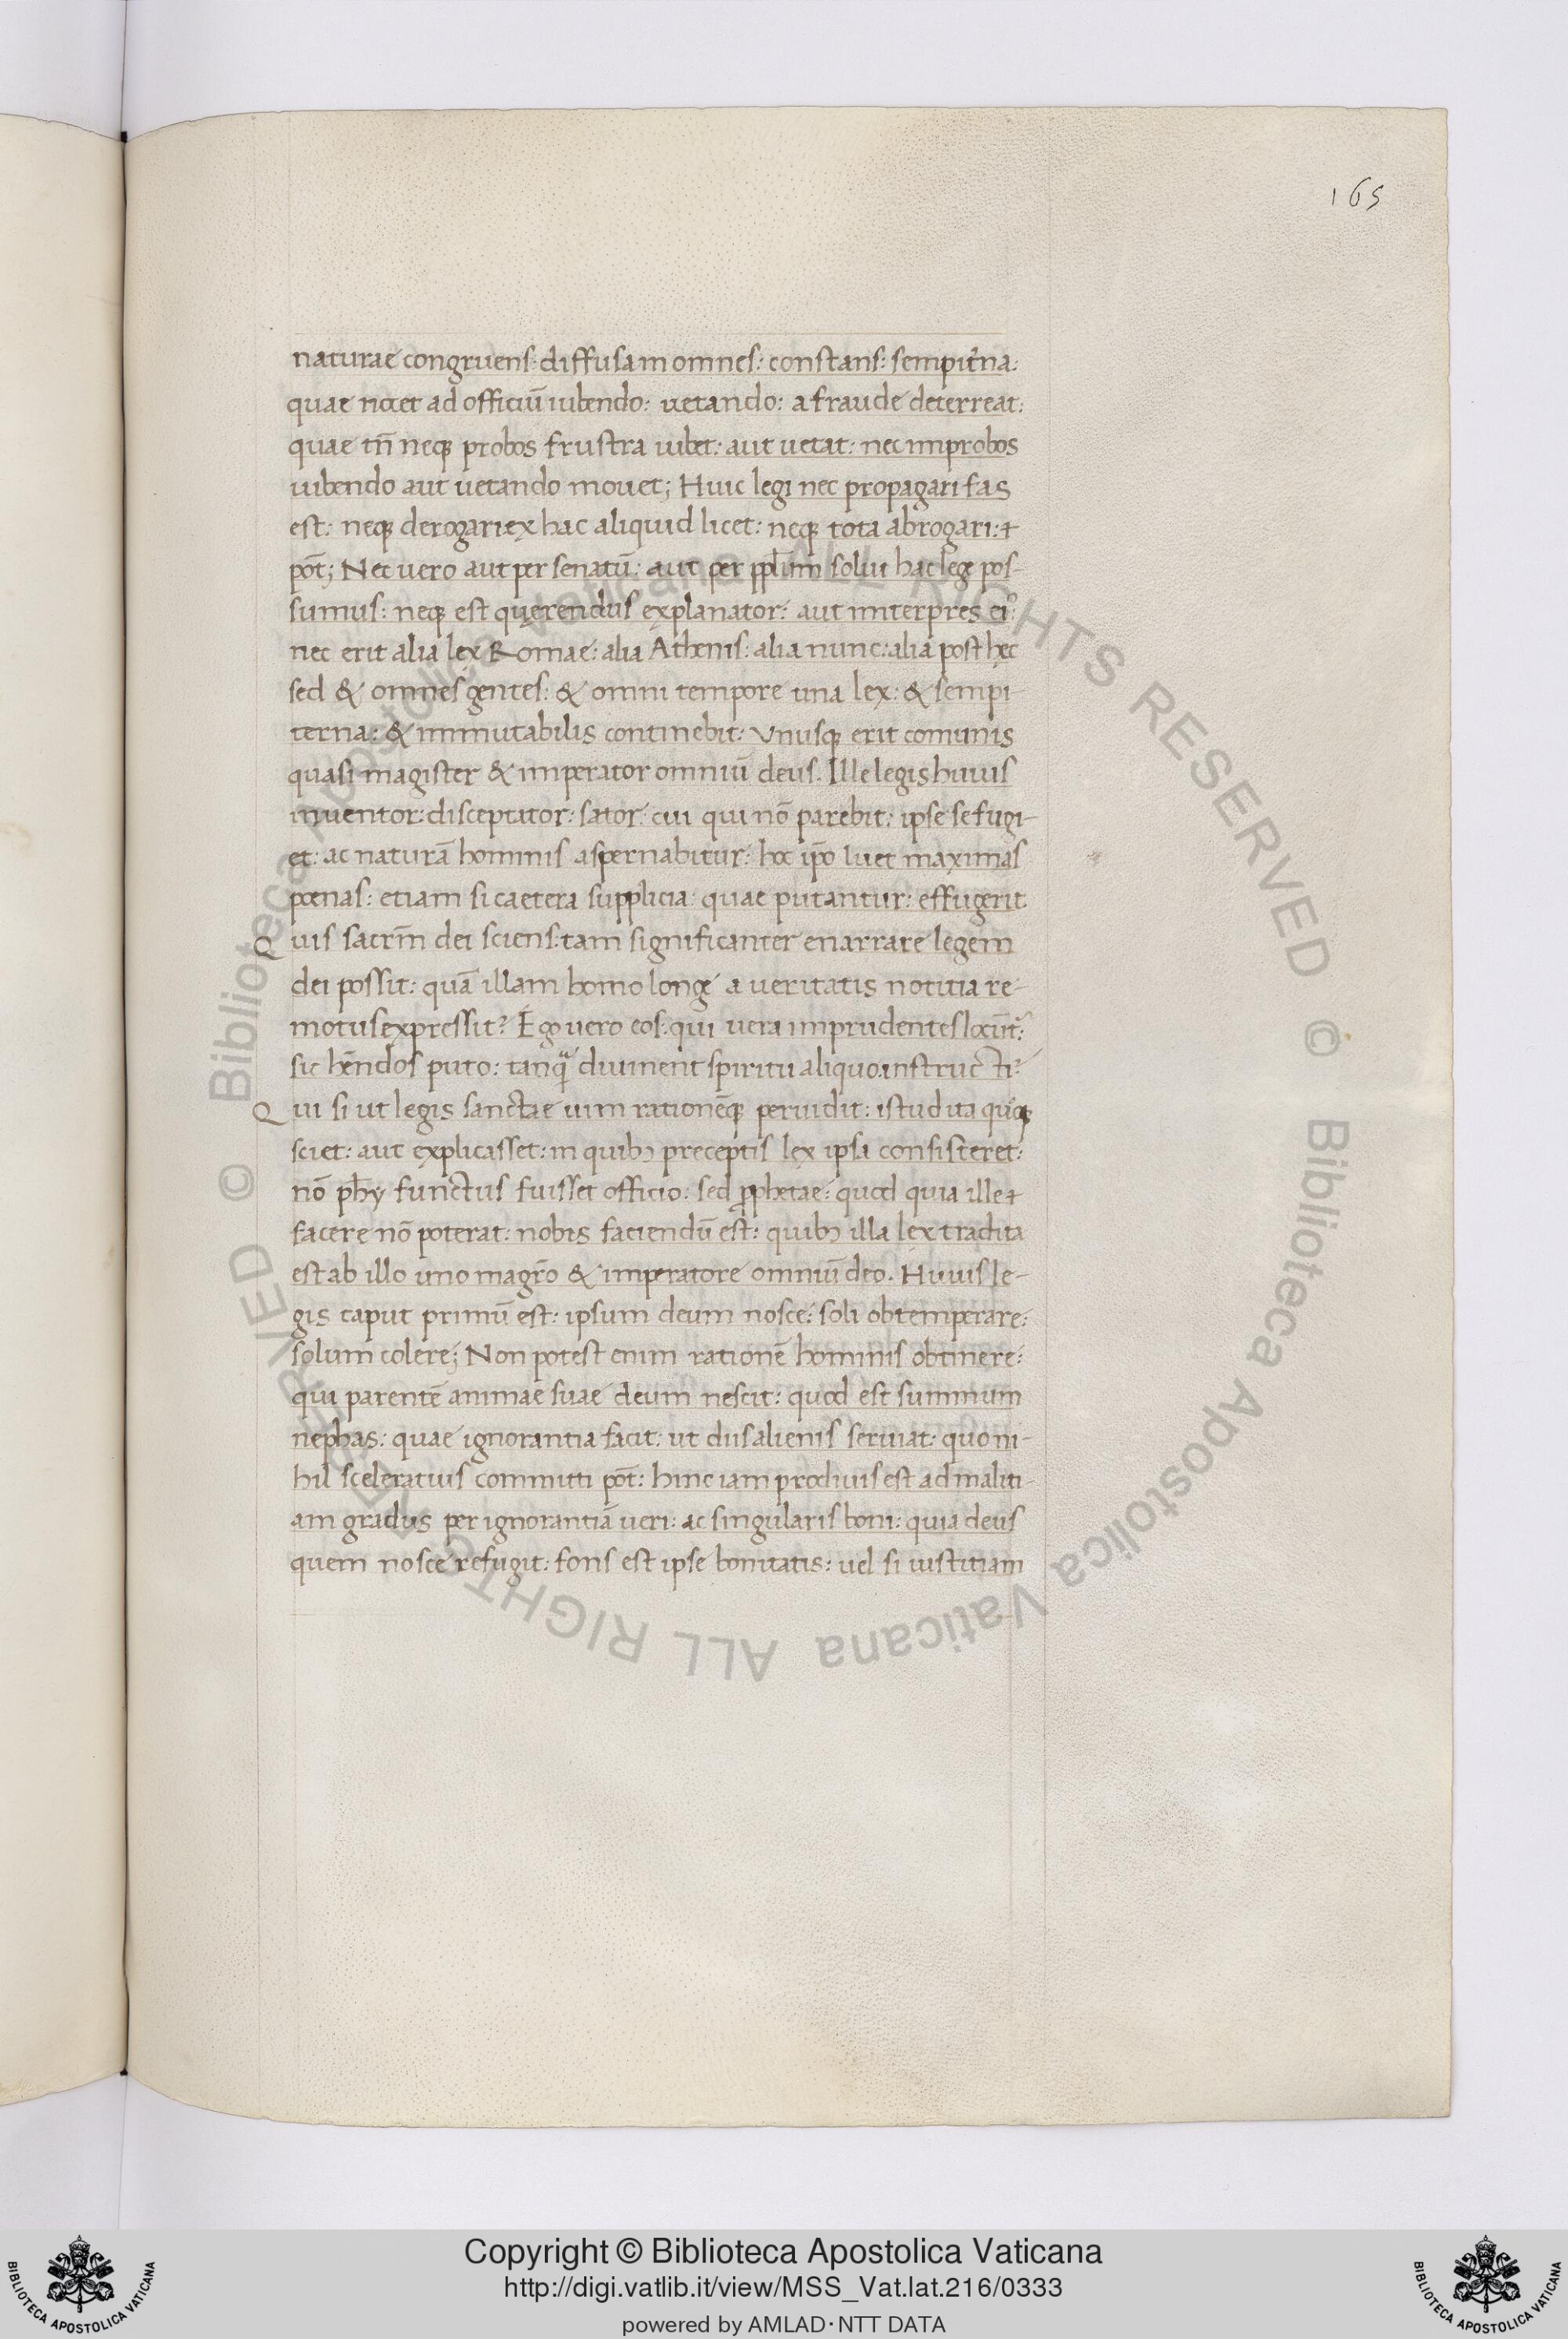 165
naturae congruens: diffusa in omnes: constans: sempit̃na:
quae uocet ad officiũ iubendo: uetando: a fraude deterreat:
quae tñ neq; probos frustra iubet: aut uetat: nec improbos
iubendo aut uetando mouet; Huic legi nec propagari fas
est: neq; derogari ex hac aliquid licet: neq; tota abrogari:
põt; Nec uero aut per senatũ: aut per pp̃lum solui hac lege pos-
sumus: neq; est quęrendus explanator: aut interpres ei9:
nec erit alia lex Romae: alia Athenis: alia nunc: alia posthęc
sed & omnes gentes: & omni tempore una lex: & sempi-
terna: & immutabilis continebit: Vnusq; erit comunis
quasi magister & imperator omniũ deus. Ille legis huius
inuentor: disceptator: sator: cui qui nõ parebit: ipse se fugi-
et: ac naturã hominis aspernabitur: hoc ip̃o luet maximas
poenas: etiam si caetera supplicia: quae putantur: effugerit
Quis sacrm̃ dei sciens: tam significanter enarrare legem
dei possit: quã illam homo longe a ueritatis notitia re-
motus expressit? Ego uero eos: qui uera imprudentes locũt̃:
sic hẽndos puto: tanq̃ diuinent spiritu aliquo instructi?
Qui si ut legis sanctae uim rationẽq; peruidit: istud ita quoq;
sciet: aut explicasset: in quib; preceptis lex ipsa consisteret:
nõ phy functus fuisset officio: sed prophetae: quod quia ille
facere nõ poterat: nobis faciendũ est: quib; illa lex tradita
est ab illo uno magrõ & imperatore omniũ deo. Huius le-
gis caput primũ est: ipsum deum nosce: soli obtemperare:
solum colere; Non potest enim rationẽ hominis obtinere:
qui parentẽ animae suae deum nescit: quod est summum
nephas: quae ignorantia facit: ut diis alienis seruiat: quo ni-
hil sceleratius committi põt: hinc iam procliuis est ad maliti-
am gradus per ignorantiã ueri: ac singularis boni: quia deus
quem nosce refugit: fons est ipse bonitatis: uel si iustitiam
© Biblioteca Apostolica Vaticana ALL RIGHTS RESERVED © Biblioteca Apostolica Vaticana ALL RIGHTS RESERVED
Copyright © Biblioteca Apostolica Vaticana
http://digi.vatlib.it/view/MSS_Vat.lat.216/0333
powered by AMLAD·NTT DATA
BIBLIOTECA APOSTOLICA VATICANA
BIBLIOTECA APOSTOLICA VATICANA